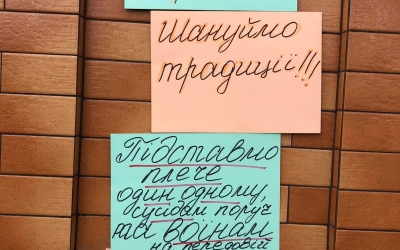 Шануймо
традиції!!!
Підставмо
плече
один одному,
сусідам поруч
та воїнам
на передовій